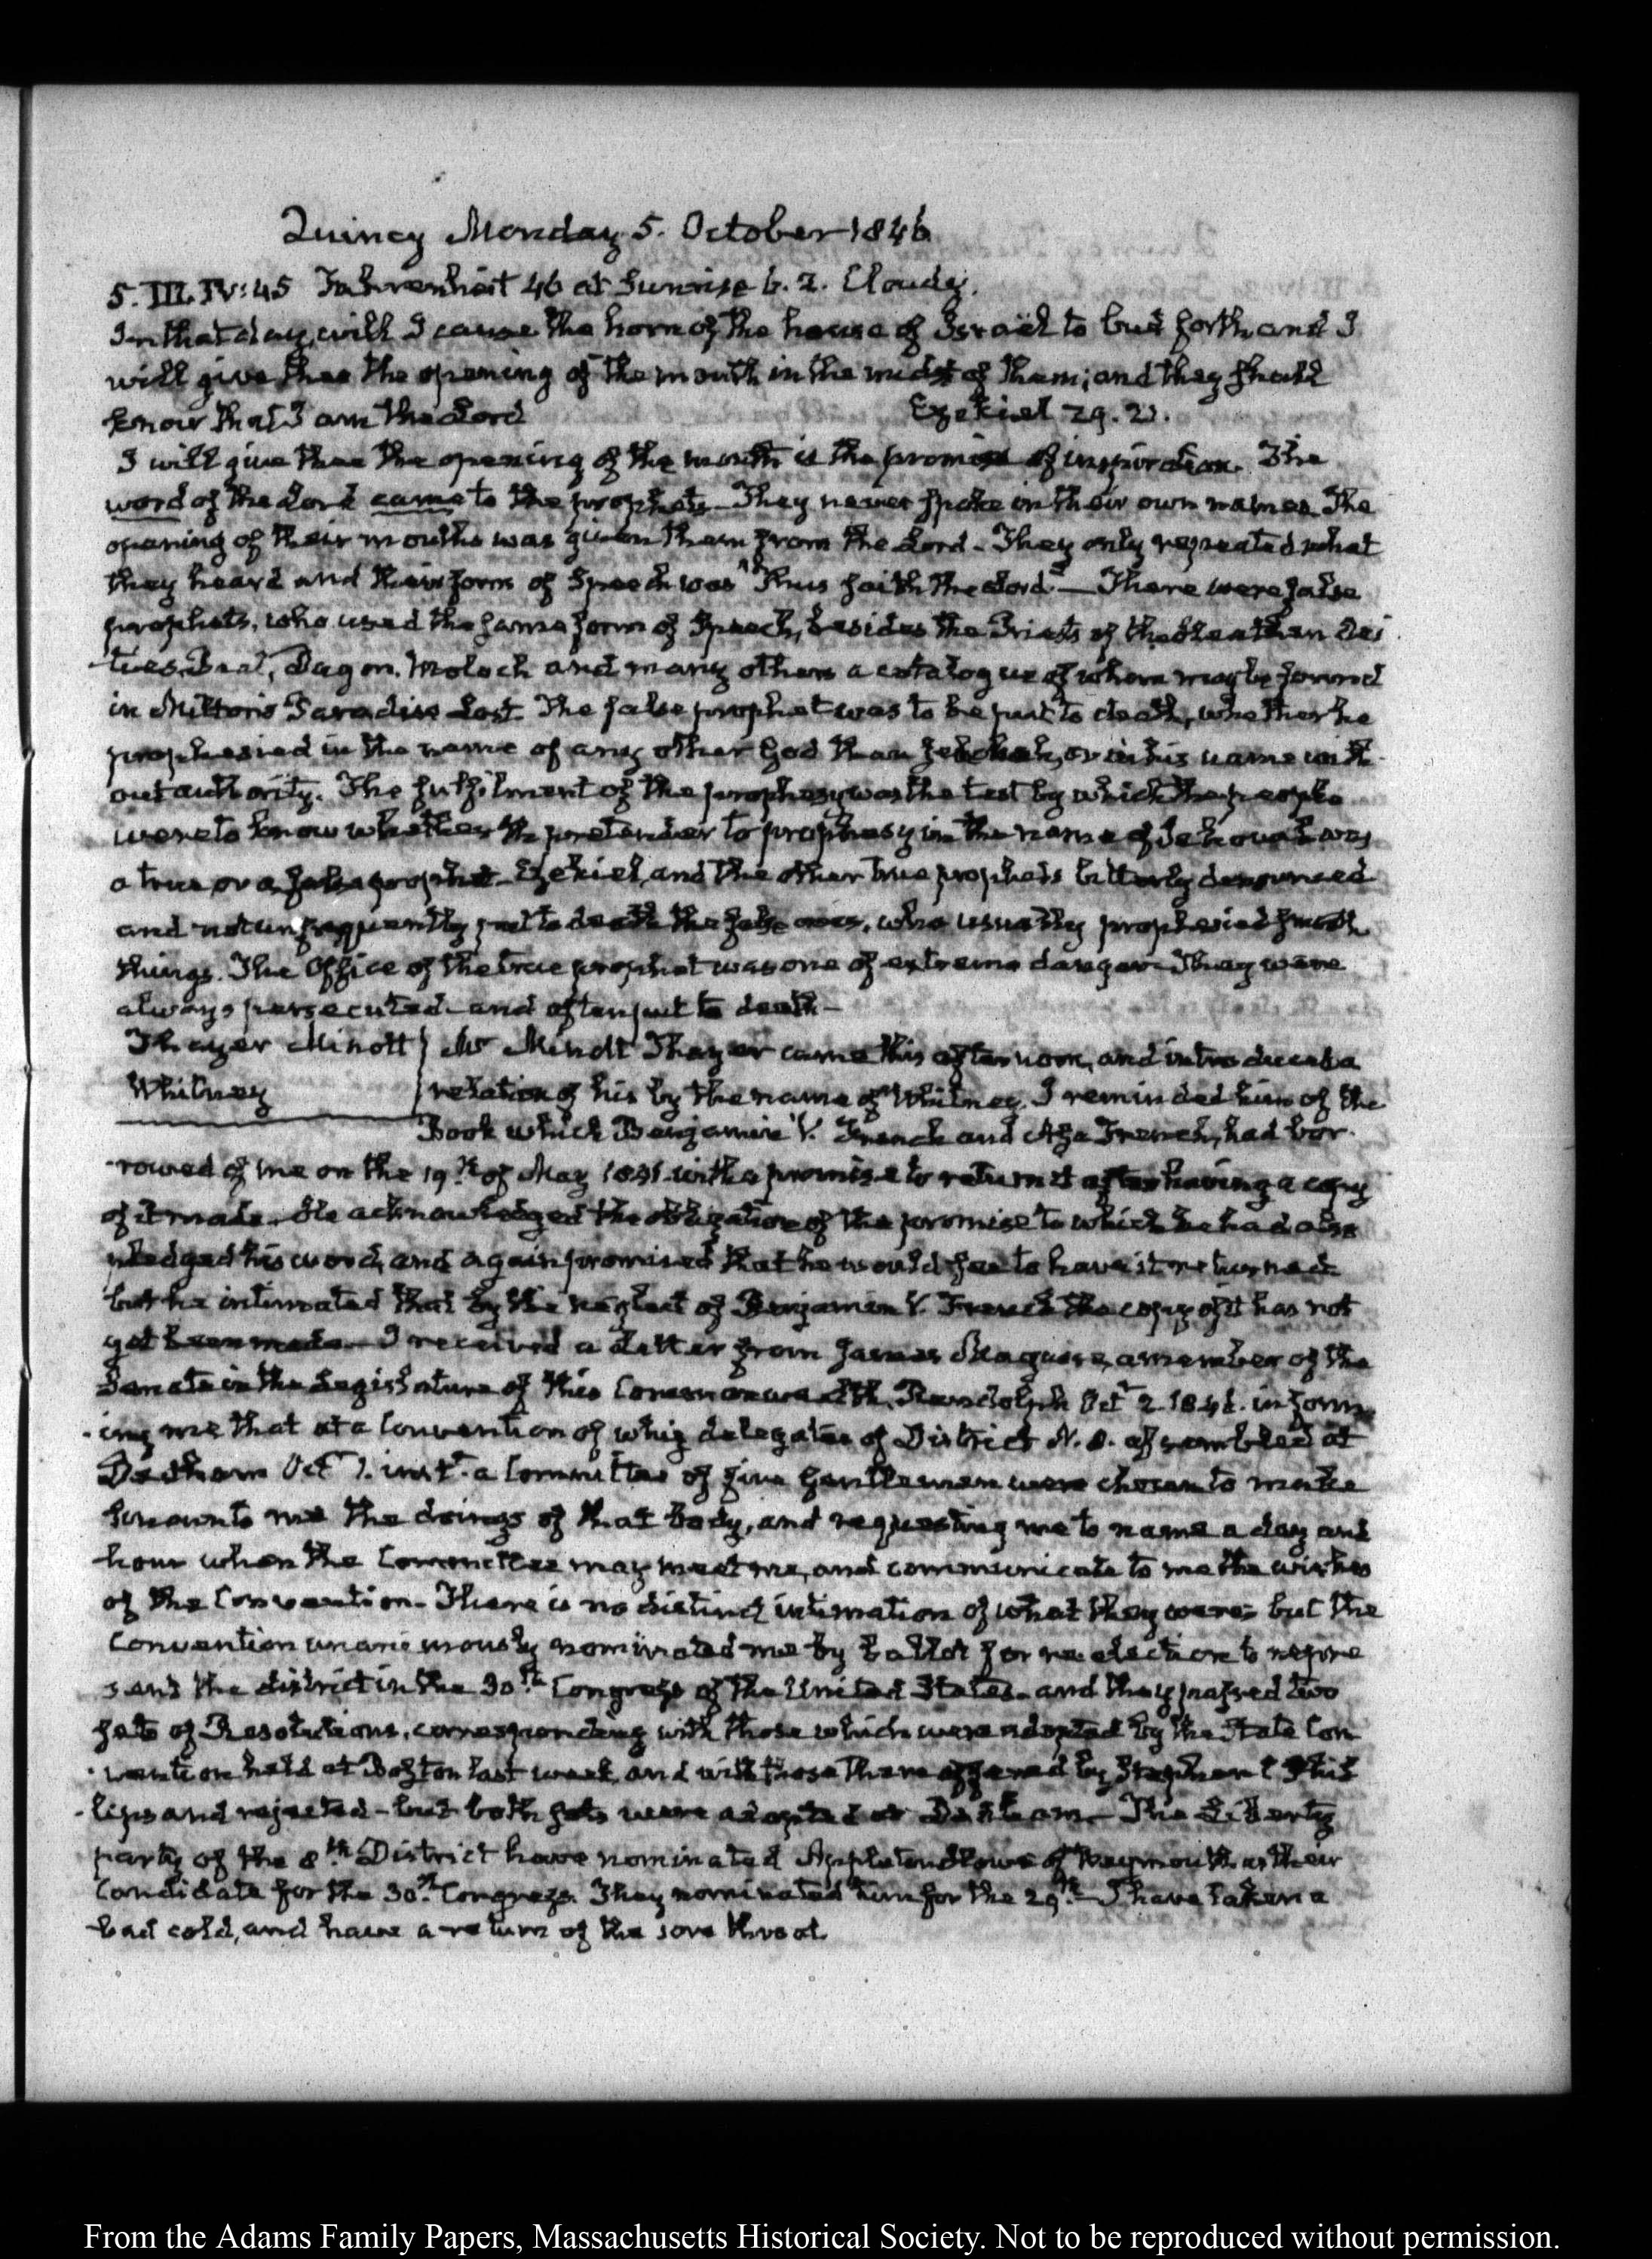 Quincy Monday 5. October 1846
5. III. IV:45 Fahrenheit 46 at Sunrise 6. 2. Cloudy.
In that day, will I cause the horn of the house of Israel to bud forth, and I
will give thee the opening of the mouth in the midst of them; and they shall
know that I am the Lord Ezekiel 29. 21.
I will give thee the opening of the mouth is the promise of inspiration. The
word of the Lord came to the prophets— They never spoke in their own names The
opening of their mouths was given them from the Lord— They only repeated what
they heard and their form of Speech was "Thus saith the Lord"— There were false
prophets, who used the same form of Speech, besides the Priests of the Heathen Dei
-ties, Baal, Dagon, Moloch and many others a catalogue of whom may be found
in Milton's Paradise Lost. The false prophet was to be put to death, whether he
prophesied in the name of any other God than Jehovah, or in his name with-
out authority. The fulfilment of the prophesy was the test by which the people
were to know whether the pretender to prophesy in the name of Jehovah was
a true or a false prophet— Ezekiel, and the other true prophets bitterly denounced
and not unfrequently put to death the false ones, who usually prophesied smooth
things. The Office of the true prophet was one of extreme danger— They were
always persecuted— and often put to death—
Thayer Minott Mr Minott Thayer came this afternoon, and introduced a
Whitney relation of his by the name of Whitney. I reminded him of the
Book which Benjamin V. French and Asa French, had bor-
-rowed of me on the 19th of May 1841 with a promise to return it after having a copy
of it made. He acknowledged the obligation of the promise to which he had also
pledged his word, and again promised that he would see to have it returned
but he intimated that by the neglect of Benjamin V. French the copy of it has not
yet been made— I received a Letter from James Maguire, a member of the
Senate in the Legislature of this Commonwealth, Randolph Oct 2. 1846. inform
-ing me that at a Convention of whig delegates of District N. 8. assembled at
Dedham Oct 1. inst. a Committee of five Gentlemen were chosen to make
known to me the doings of that body, and requesting me to name a day and
hour when the Committee may meet me, and communicate to me the wishes
of the Convention— There is no distinct intimation of what they were; but the
Convention unanimously nominated me by ballot for re election to repre
sent the district in the 30th Congress of the United States— and they passed two
sets of Resolutions, corresponding with those which were adopted by the State Con
-vention held at Boston last week, and with those there offered by Stephen C Phil
-lips and rejected— but both sets were adopted at Dedham— The Liberty
party of the 8th District have nominated Appleton Howe of Weymouth as their
Candidate for the 30th Congress. They nominated him for the 29th— I have taken a
bad cold, and have a return of the sore throat.
From the Adams Family Papers, Massachusetts Historical Society. Not to be reproduced without permission.